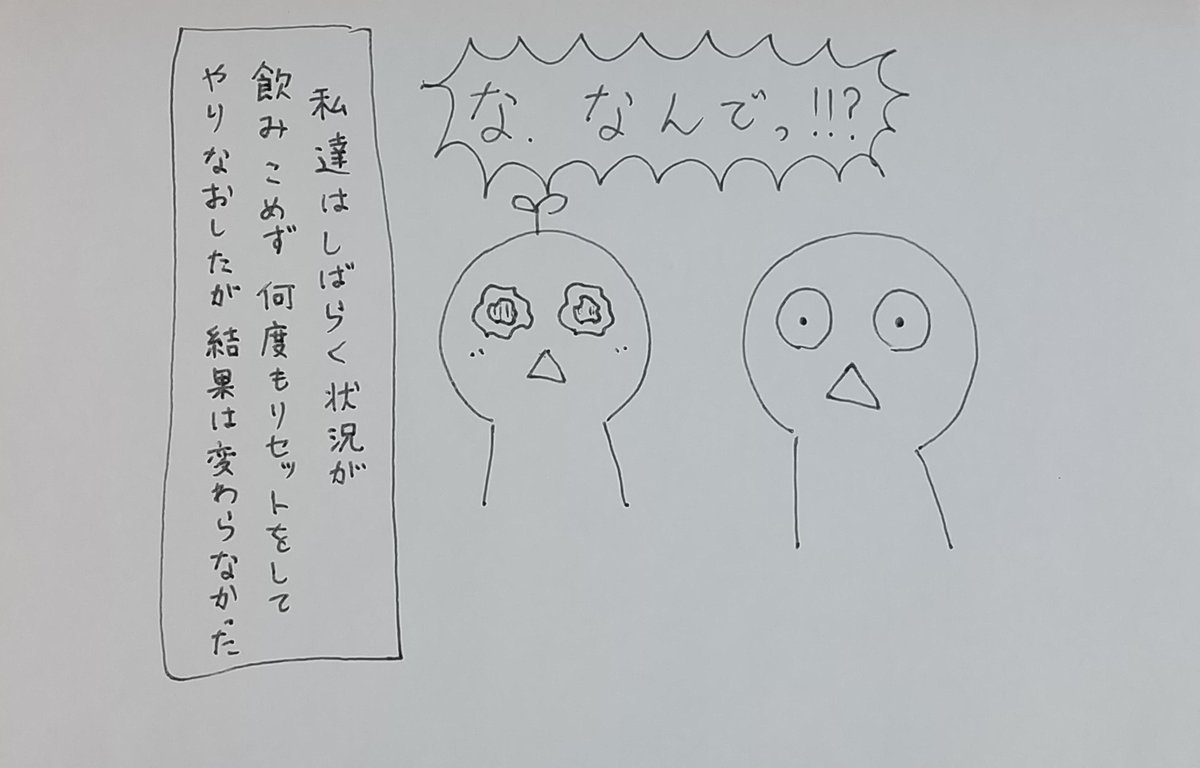 な、なんでっ!!?
私達はしばらく状況が
飲みこめず何度もリセットをして
やりなおしたが結果は変わらなかった